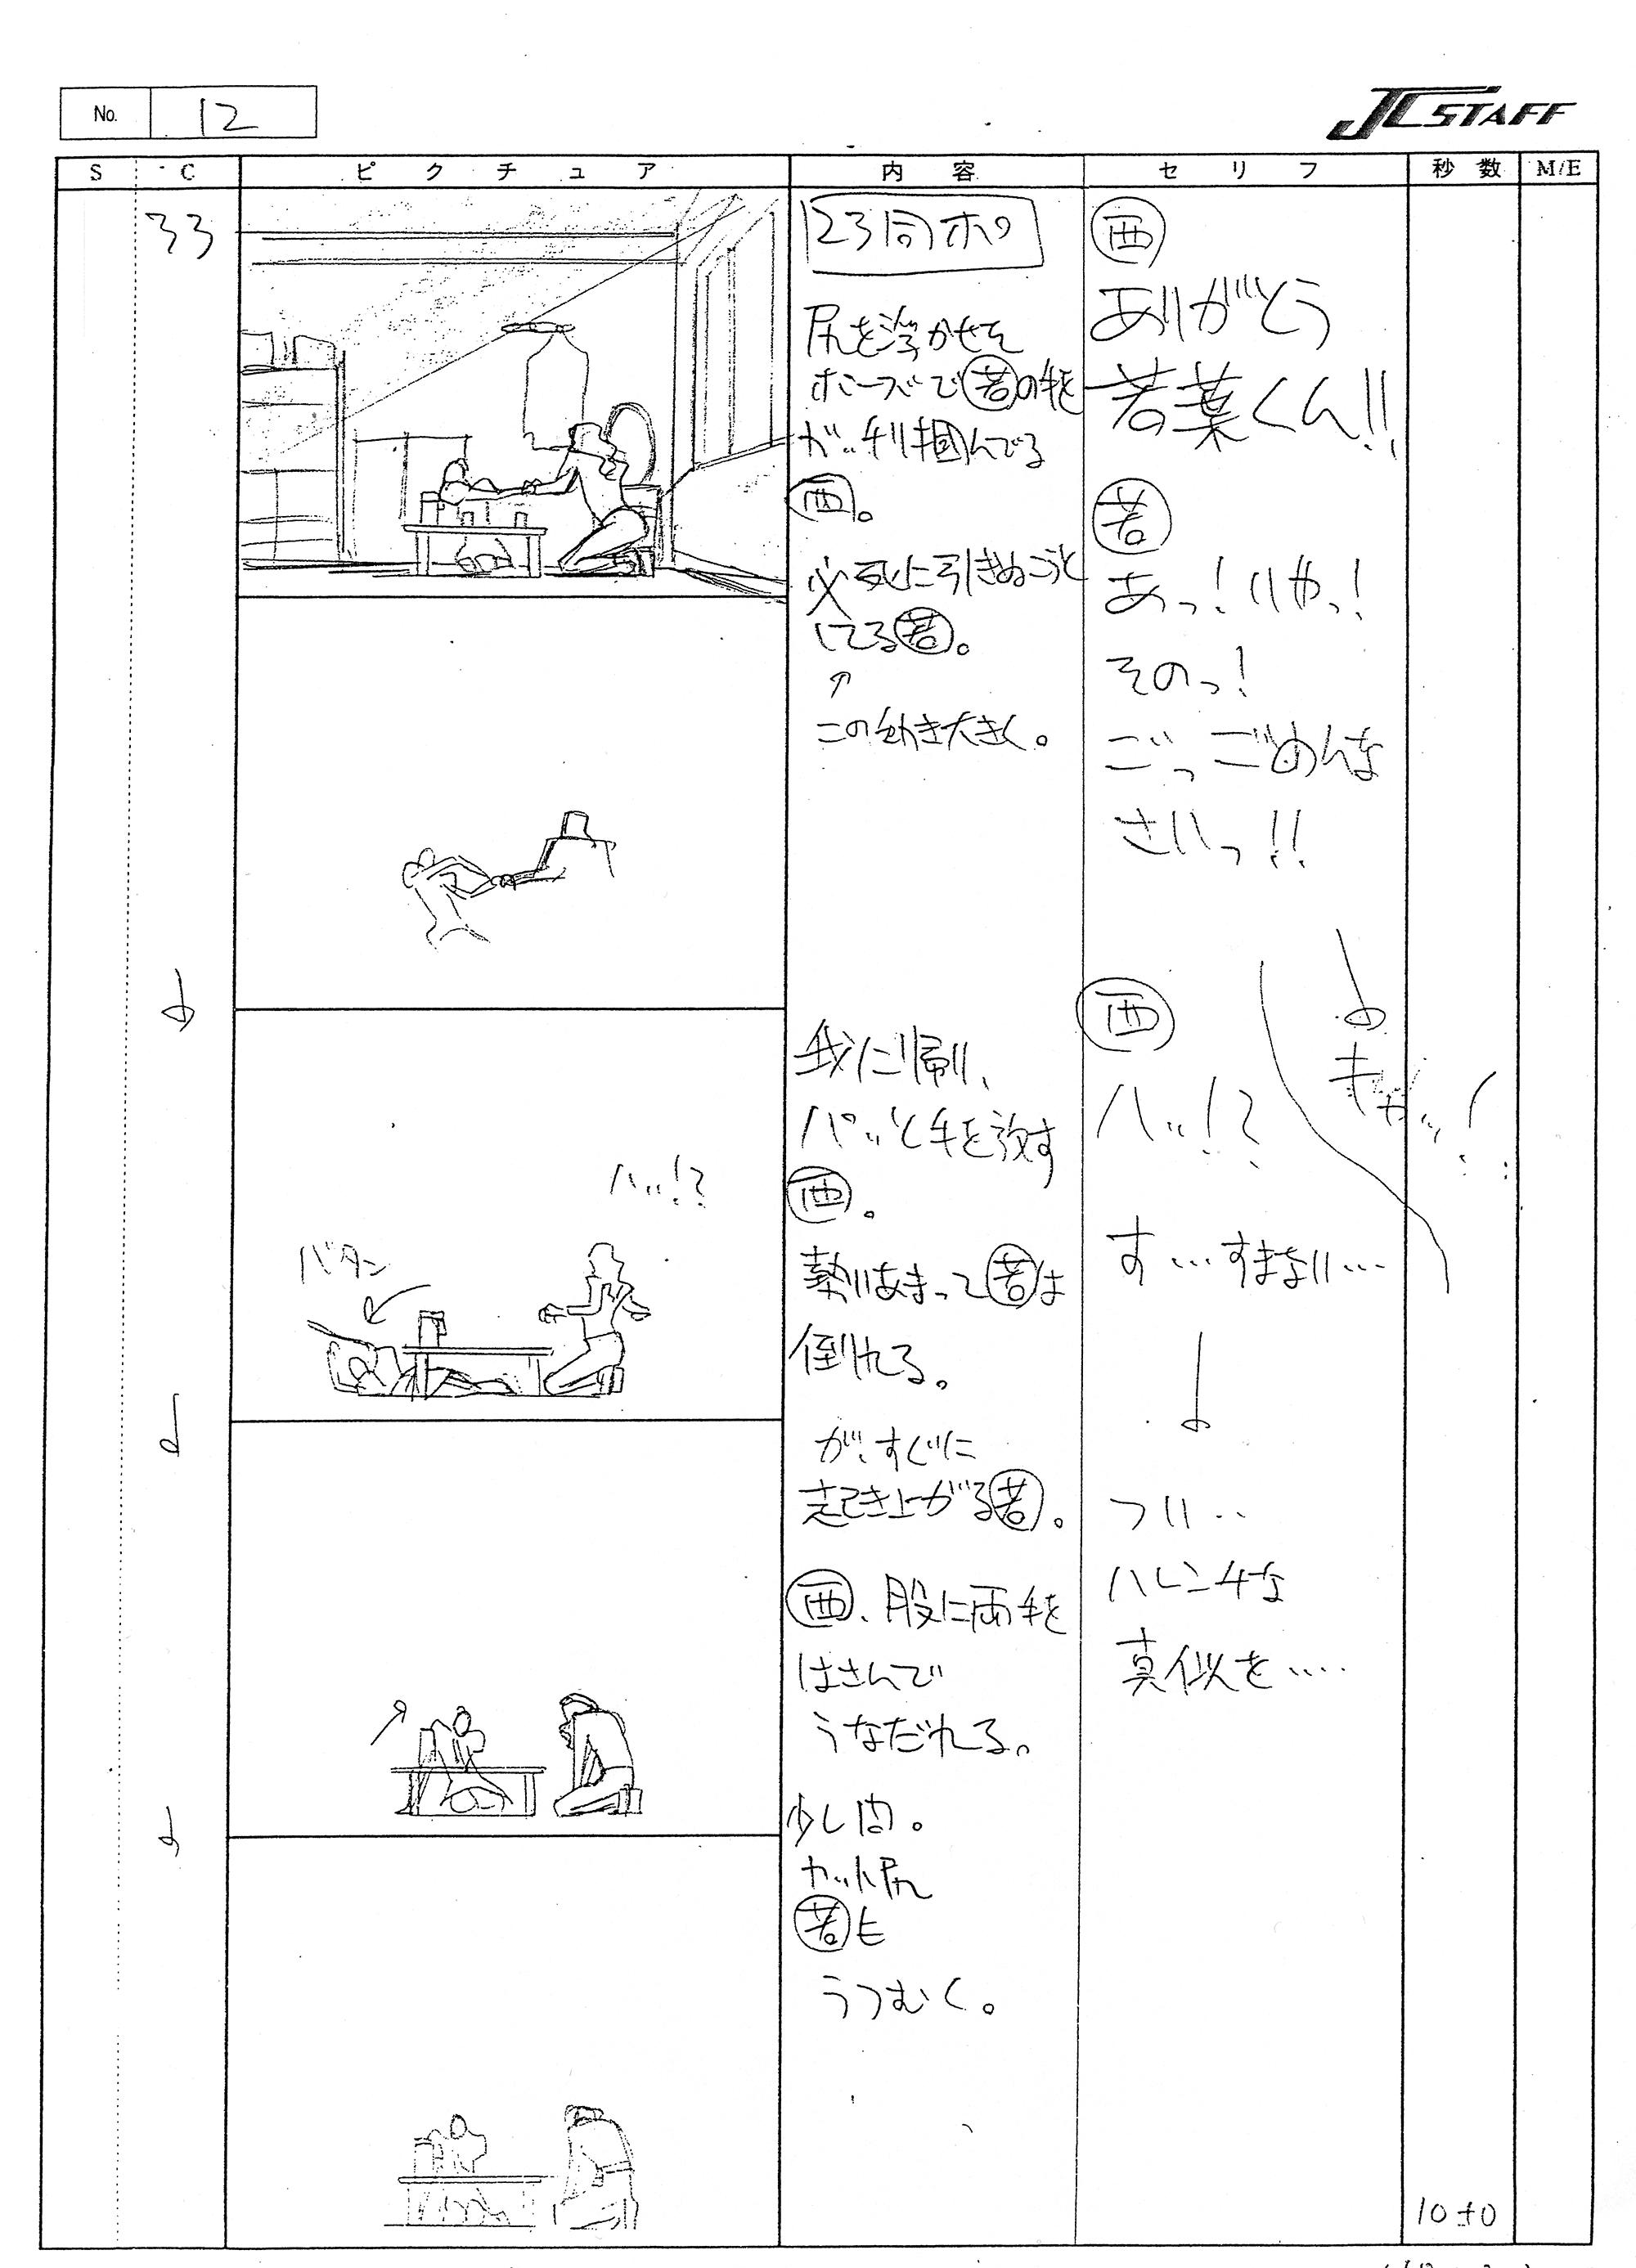 No. 12
JC STAFF
S C ピクチュア 内容 セリフ 秒数 M/E
33
123同ポ
尻を浮かせた
ポーズで若の手を
ガッチリ掴んでる
西。
必死に引きぬこうと
してる若。
↑
この動き大きく。
西
ありがとう
若葉くん!!
若
あっ!いやっ!
そのっ!
ごっごめんな
さいっ!!
キャッ!
ハッ!?
バタン
我に帰り、
パッと手を放す
西。
勢いあまって若は
倒れる。
が、すぐに
起き上がる若。
西、股に両手を
はさんで
うなだれる。
少し間。
カット尻
若も
うつむく。
西
ハッ!?
す…すまない…
つい‥
ハレンチな
真似を‥‥
10+0